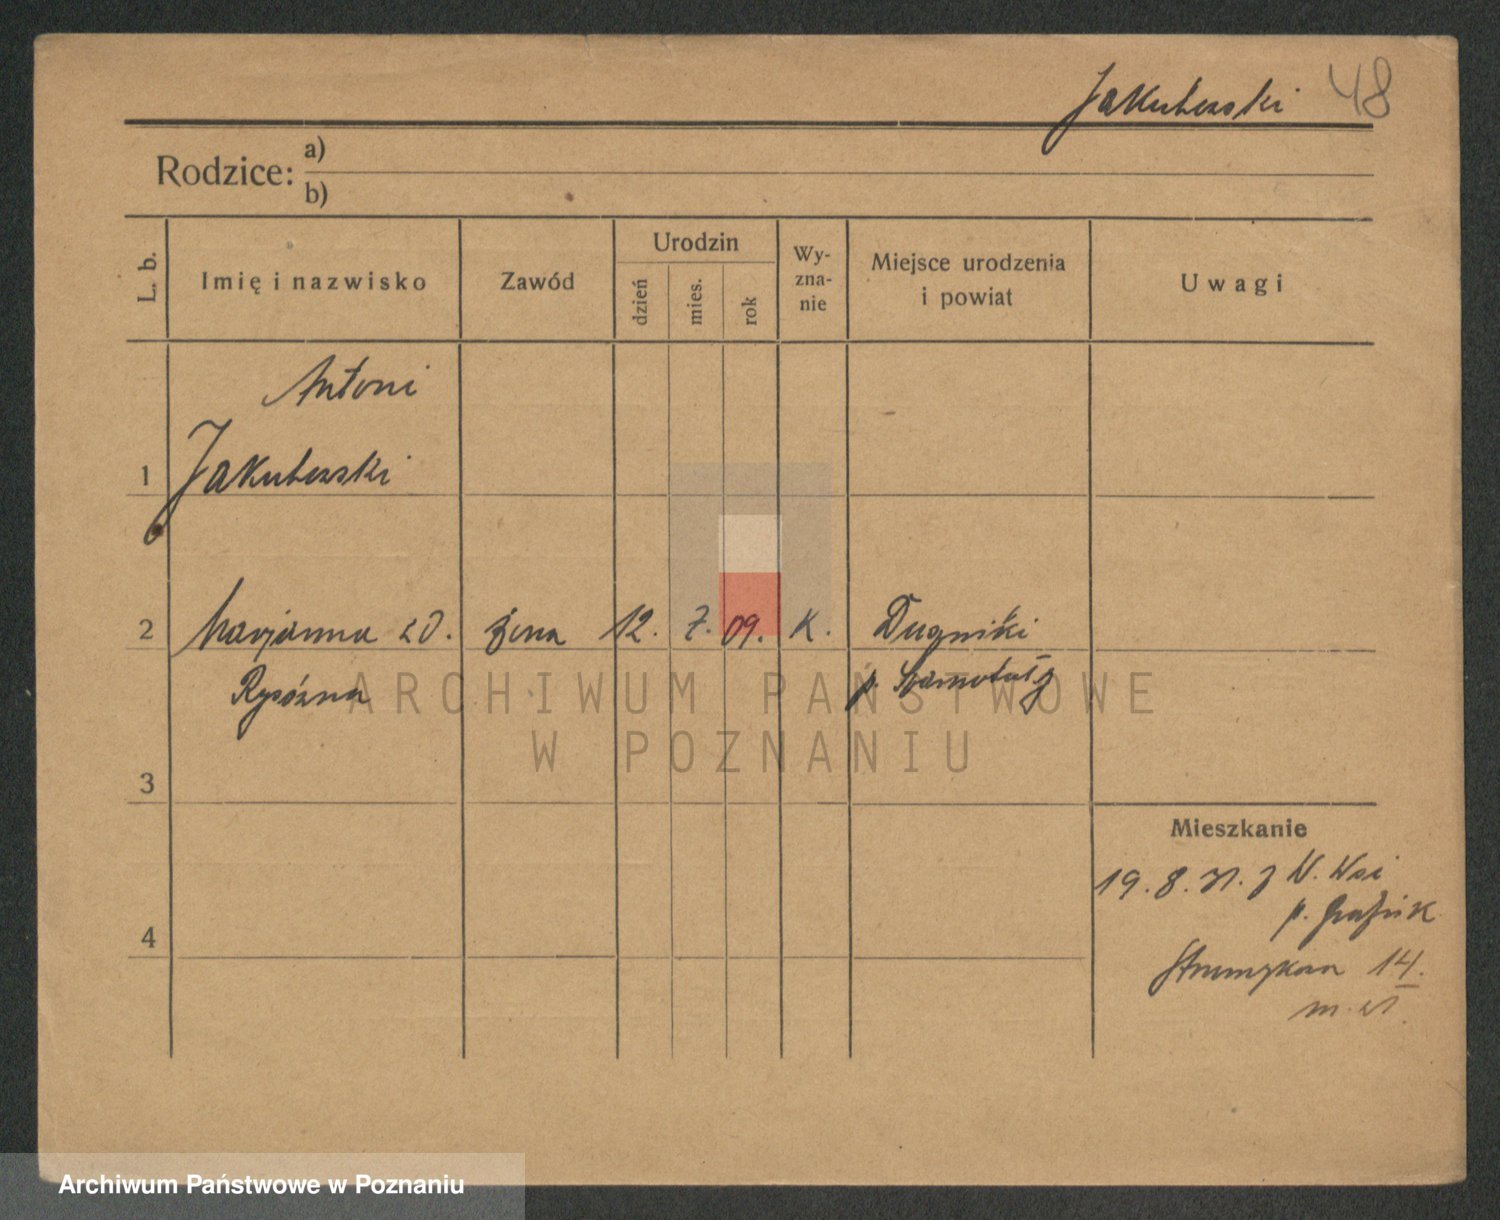 Jakubowski 48
Rodzice: a)
b)
L. b.
Imię i nazwisko
Zawód
Urodzin
dzień
mies.
rok
Wy-
zna-
nie
Miejsce urodzenia
i powiat
Uwagi
Antoni
1 Jakubowski
2 Marjanna żona 12. 7. 09. K.
p. Szamotuły
ARCHIWUM PAŃSTWOWE
W POZNANIU
3
Mieszkanie
19. 8. 31. z N. Wsi
p.
4
14.
m.
Archiwum Państwowe w Poznaniu